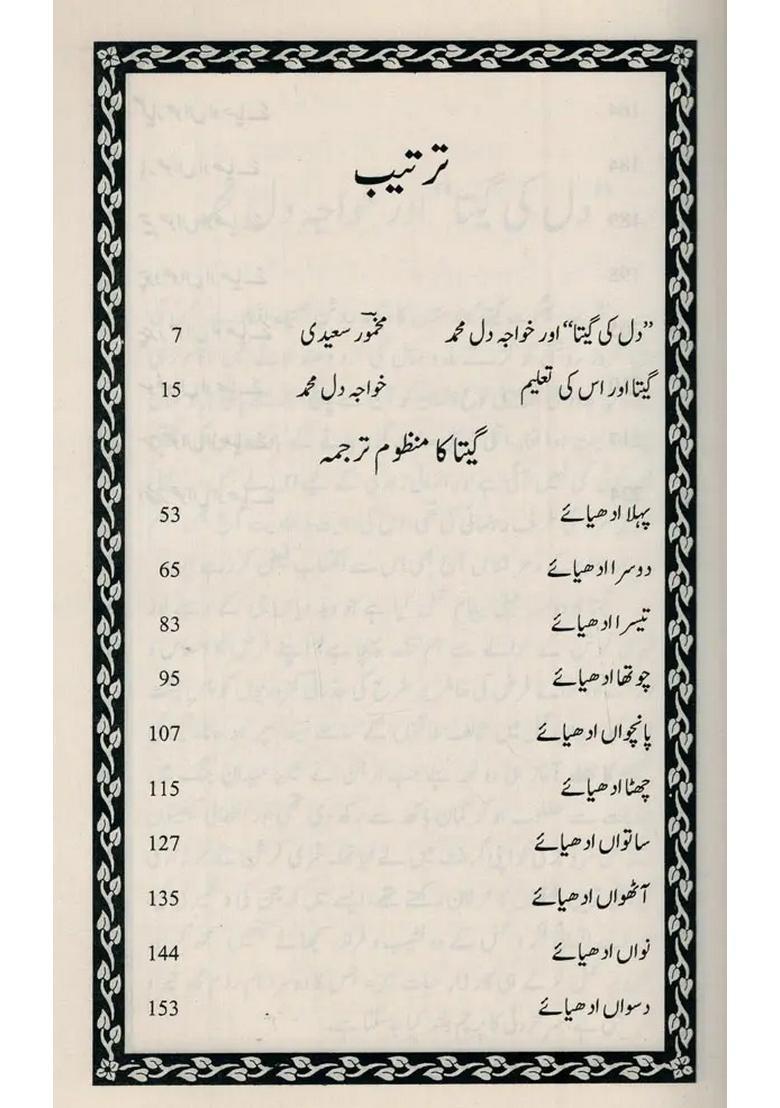 ترتیب
”دل کی گیتا“ اور خواجہ دل محمد مخمور سعیدی 7
گیتا اور اس کی تعلیم خواجہ دل محمد 15
گیتا کا منظوم ترجمہ
پہلا ادھیائے 53
دوسرا ادھیائے 65
تیسرا ادھیائے 83
چوتھا ادھیائے 95
پانچواں ادھیائے 107
چھٹا ادھیائے 115
ساتواں ادھیائے 127
آٹھواں ادھیائے 135
نواں ادھیائے 144
دسواں ادھیائے 153